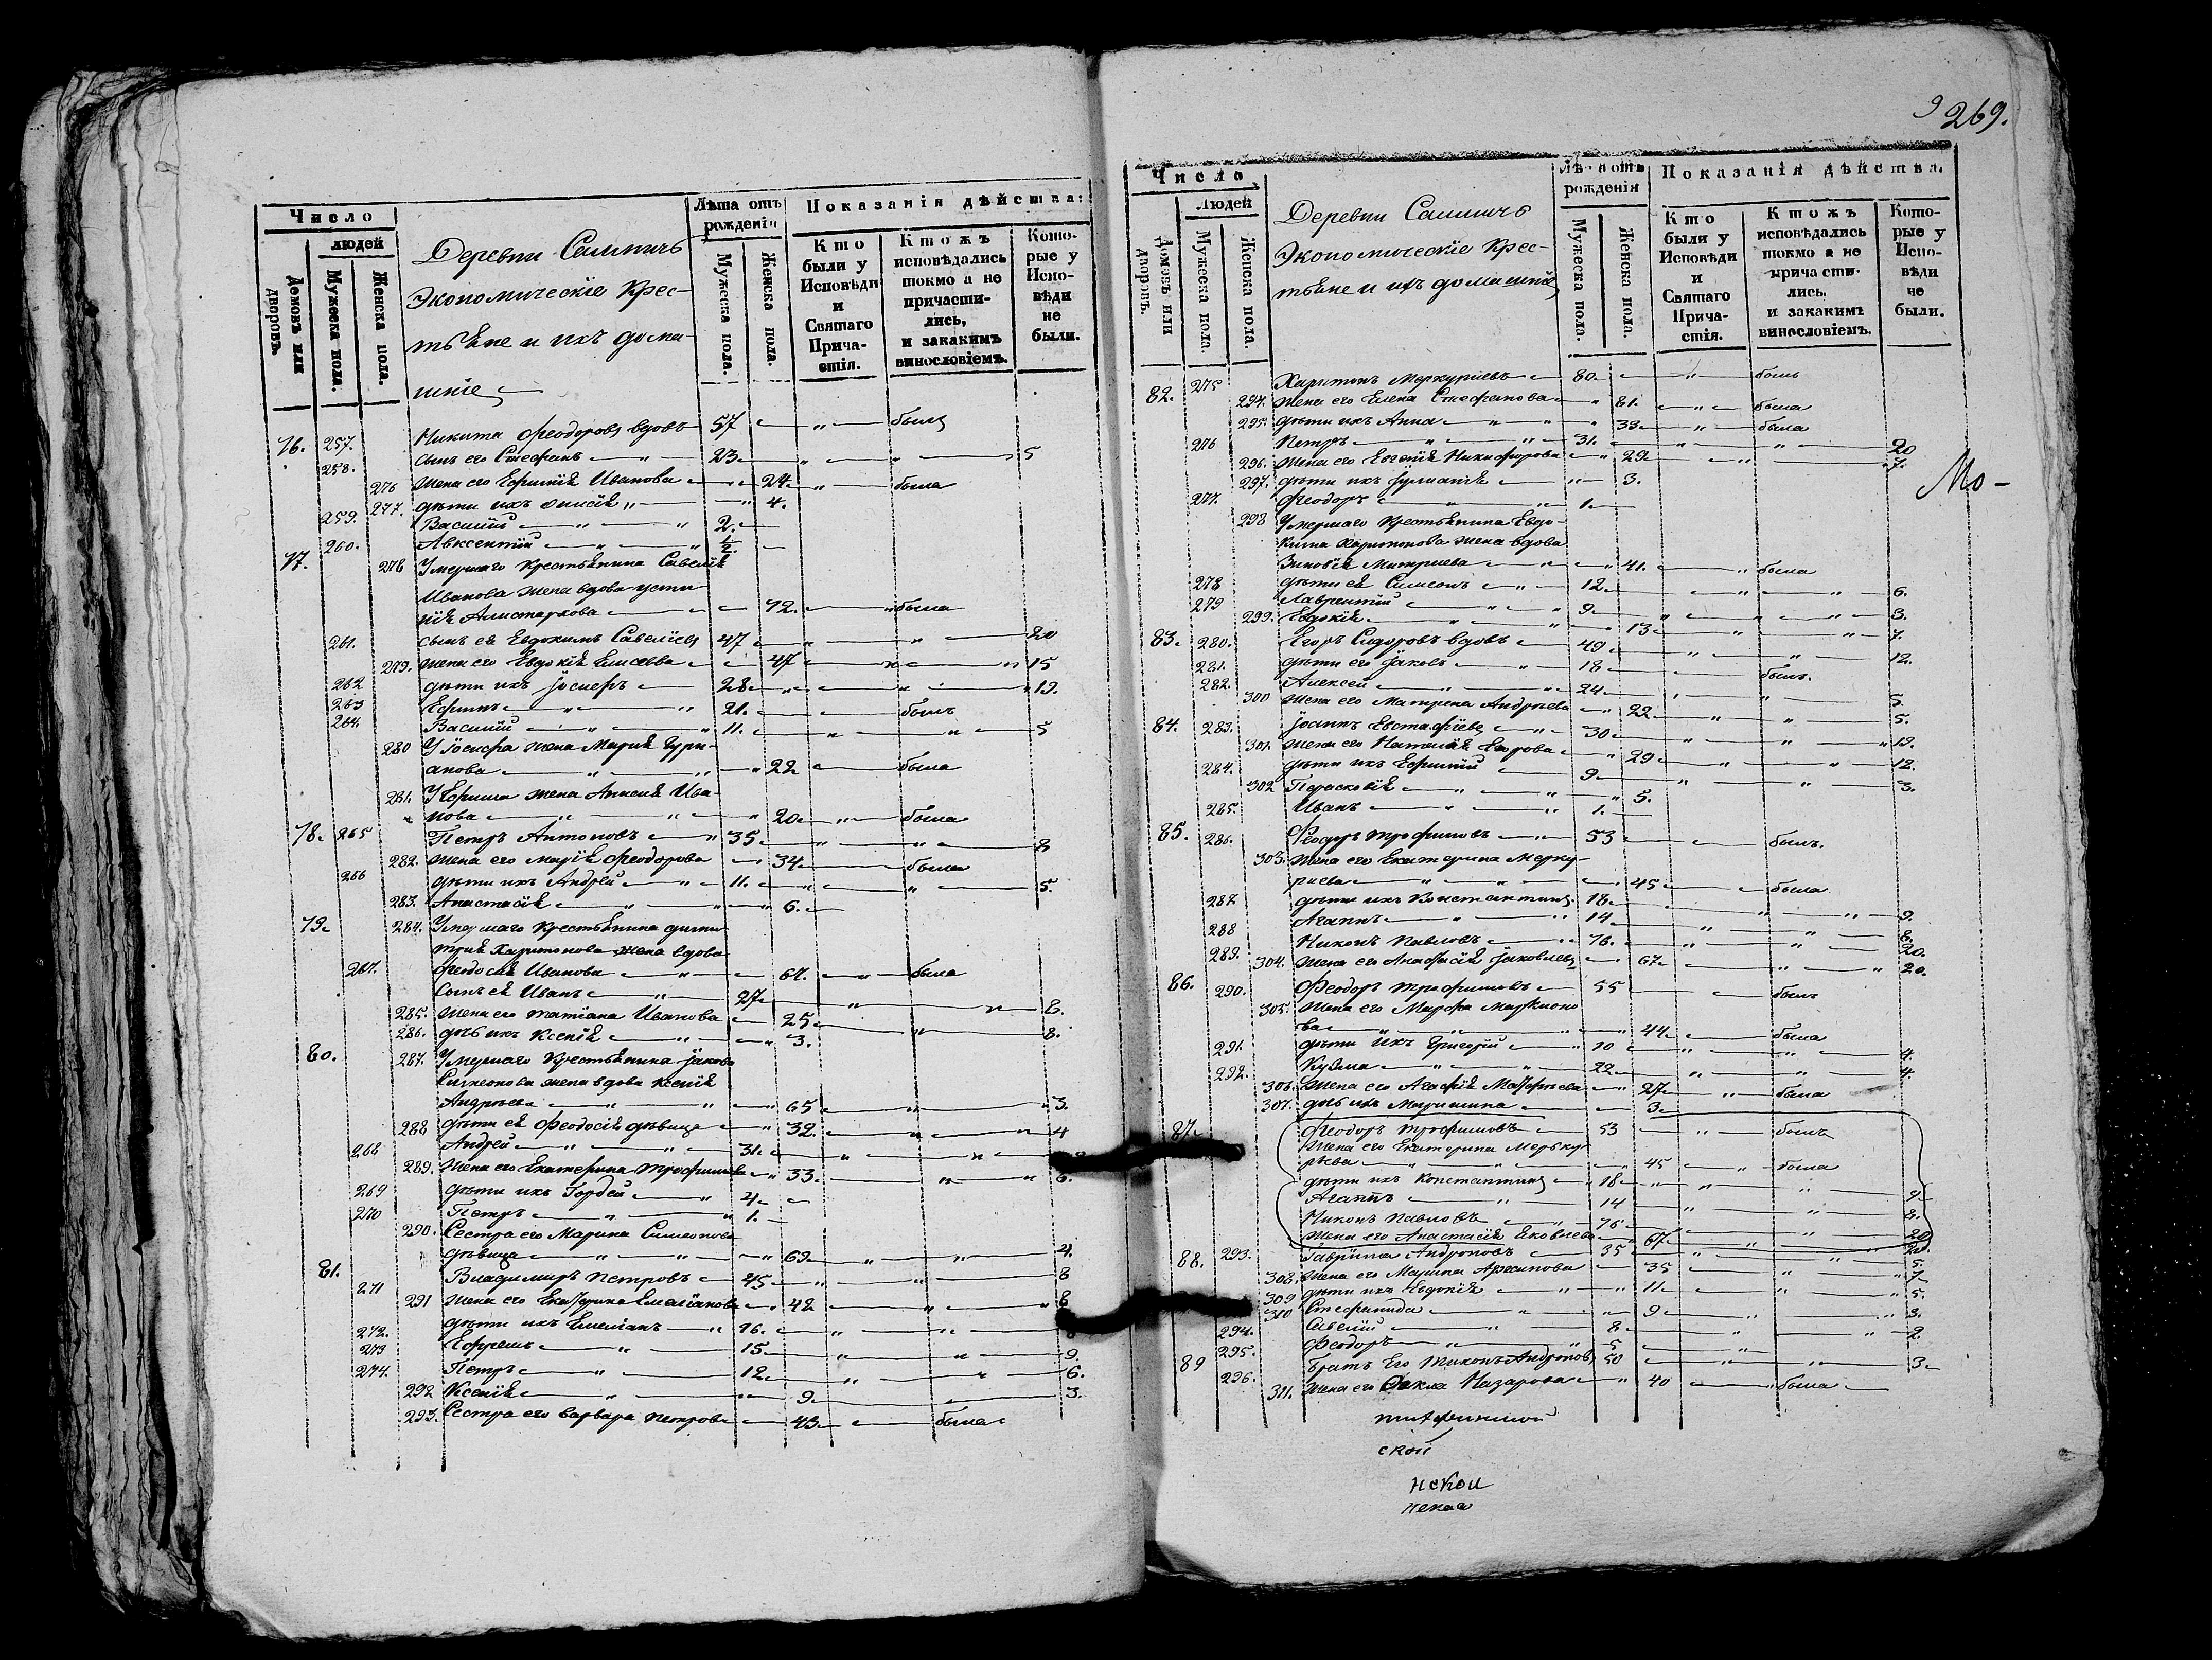 Число
людей
Домовъ или дворовъ.
Мужеска пола.
Женска пола.
Деревни
Экономическіе Крес-
тьяне и ихъ дома-
шніе
Лѣта отъ рожденія
Мужеска пола.
Женска пола.
Показанія дѣйства:
Кто были у Исповѣди и Святаго Причастія.
Ктожъ исповѣдались токмо а не причастились, и закакимъ винословіемъ.
Которые у Исповѣди не были.
76. 257. Никита Феодоровъ вдовъ 57 былъ
258. сынъ его Стефанъ 23 5
276 жена его Ефимія Иванова 24 была
277. дѣти ихъ 4.
259. Василій 2.
260. Авксентій ½
77. 278 Умершаго Крестьянина Савелія
Иванова жена вдова Усти-
нія Алистархова 72. была
261. сынъ ея Евдокимъ Савеліевъ 47 20
279. жена его Евдокія Елисеева 47 15
262 дѣти ихъ Іосифъ 28 19.
263 Ефимъ 21. былъ
264. Василій 11. 5
280 У Іосифа жена Марія Гури-
анова 22 была
281. У Ефима жена Ива-
нова 20 была
78. 265 Петръ Антоновъ 35 8
282. жена его Марія Феодорова 34 была
266 дѣти ихъ Андрей 11. 5.
283. Анастасія 6.
79. 284. Умершаго Крестьянина Дими-
трія Харитонова жена вдова
267. Феодосія Иванова 61. была
Сынъ ея Иванъ 27 8.
285. жена его Татіана Иванова 25 8.
286. дочь ихъ Ксенія 3.
80. 287. Умершаго Крестьянина Іакова
Симеонова жена вдова Ксенія
Андреева 65 3.
288 дѣти ея Феодосія дѣвица 32. 4
268 Андрей 31.
289. жена его Екатерина Трофимова 33. 6.
269 дѣти ихъ Гордей 4.
270 Петръ 1.
290. Сестра его Марина Симеонова
дѣвица 69 4.
81. 271 Владимиръ Петровъ 45 8
291 жена его Екатерина Емеліанова 42 8
272. дѣти ихъ Емеліанъ 16.
273 Ефремъ 15 9.
274. Петръ 12 6.
292 Ксенія 9. 3.
293. Сестра его Варвара Петрова 43 была
269.
Число
Людей
Домовъ или дворовъ.
Мужеска пола.
Женска пола.
Деревни
Экономическіе Крес-
тьяне и ихъ домашніе
Лѣта отъ рожденія
Мужеска пола.
Женска пола.
Показанія дѣйства.
Кто были у Исповѣди и Святаго Причастія.
Ктожъ исповѣдались токмо а не причастились, и закакимъ винословіемъ.
Которые у Исповѣди не были.
82. 275 Харитонъ Меркуріевъ 80 былъ
294. жена его Елена Стефанова 81. была
295. дѣти ихъ Анна 33 была
276 Петръ 31. 20
296. жена его Евгенія Никифорова 29 7.
297. дѣти ихъ Іуліанія 3.
277. Феодоръ 1.
298 Умершаго Крестьянина Евдо-
кима Харитонова жена вдова
Зиновія Митріева 41. была
278 дѣти ея Симеонъ 12. 6.
279 Лаврентій 9 3.
299. Евдокія 13 7.
83. 280. Егоръ Сидоровъ вдовъ 49 12.
281. дѣти его Іаковъ 18 былъ.
282. Алексей 24 5.
300 жена его Матрена Андреева 22 5.
84. 283. Іоаннъ Евстафіевъ 30 19.
301. жена его Наталія Егорова 29 12.
284. дѣти ихъ Ефимій 9 3.
302 Парасковія 5.
285. Иванъ 1.
85. 286. Феодоръ Трофимовъ 53 былъ.
303. жена его Екатерина Мерку-
риева 45 была
287 дѣти ихъ Константинъ 18 9.
288 Агапъ 14 8.
289. Никонъ Павловъ 76. 20.
304. жена его Анастасія Іаковлева 67 20.
86. 290. Феодоръ Трофимовъ 55 былъ
305. Жена его Марфа Маркионо-
ва 44 была
291. дѣти ихъ Григорій 10 4.
292. Кузма 22 4.
306. Жена его Агафія 27 была
307. дочь ихъ Маріанна 3
87. Феодоръ Трофимовъ 53 былъ
Жена его Екатерина Мерьку-
рьева 45 была
дѣти ихъ Константинъ 18 9
Агапъ 14 8.
Никонъ Павловъ 76 20
жена его Анастасія Яковлева 67 20.
88. 293. Гавріила Андроновъ 35 5.
308. жена его Марина Архипова 35 7
309 дѣти ихъ Евдокія 11 5.
310 Стефанида 9 3.
294. Савелій 8 2.
295. Феодоръ 5
89 296. Братъ Его Тихонъ Андроновъ 50 3
311. жена его Фекла Назарова 40 была
ской
нской
Мо-